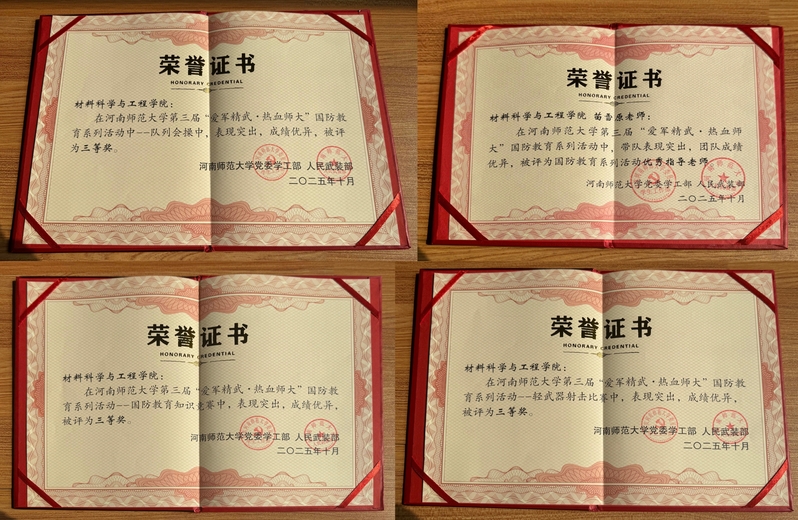 荣誉证书
HONORARY CREDENTIAL
材料科学与工程学院：
在河南师范大学第三届“爱军精武·热血师大”国防教
育系列活动中--队列会操中，表现突出，成绩优异，被评
为三等奖。
河南师范大学党委学工部 人民武装部
二〇二五年十月
荣誉证书
HONORARY CREDENTIAL
材料科学与工程学院 苗雷原老师：
在河南师范大学第三届“爱军精武·热血师
大”国防教育系列活动中，带队表现突出，团队成绩
优异，被评为国防教育系列活动优秀指导老师。
河南师范大学党委学工部 人民武装部
二〇二五年十月
荣誉证书
HONORARY CREDENTIAL
材料科学与工程学院：
在河南师范大学第三届“爱军精武·热血师大”国防教
育系列活动--国防教育知识竞赛中，表现突出，成绩优异，
被评为三等奖。
河南师范大学党委学工部 人民武装部
二〇二五年十月
荣誉证书
HONORARY CREDENTIAL
材料科学与工程学院：
在河南师范大学第三届“爱军精武·热血师大”国防教
育系列活动--轻武器射击比赛中，表现突出，成绩优异，
被评为三等奖。
河南师范大学党委学工部 人民武装部
二〇二五年十月